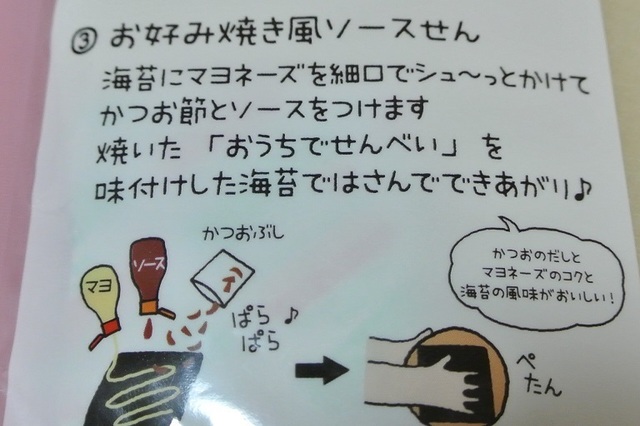 ③ お好み焼き風ソースせん
海苔にマヨネーズを細口でシュ〜っとかけて
かつお節とソースをつけます
焼いた「おうちでせんべい」を
味付けした海苔ではさんでできあがり♪
かつおぶし
ソース
マヨ
ぱら♪
ぱら
かつおのだしと
マヨネーズのコクと
海苔の風味がおいしい！
ぺ
たん